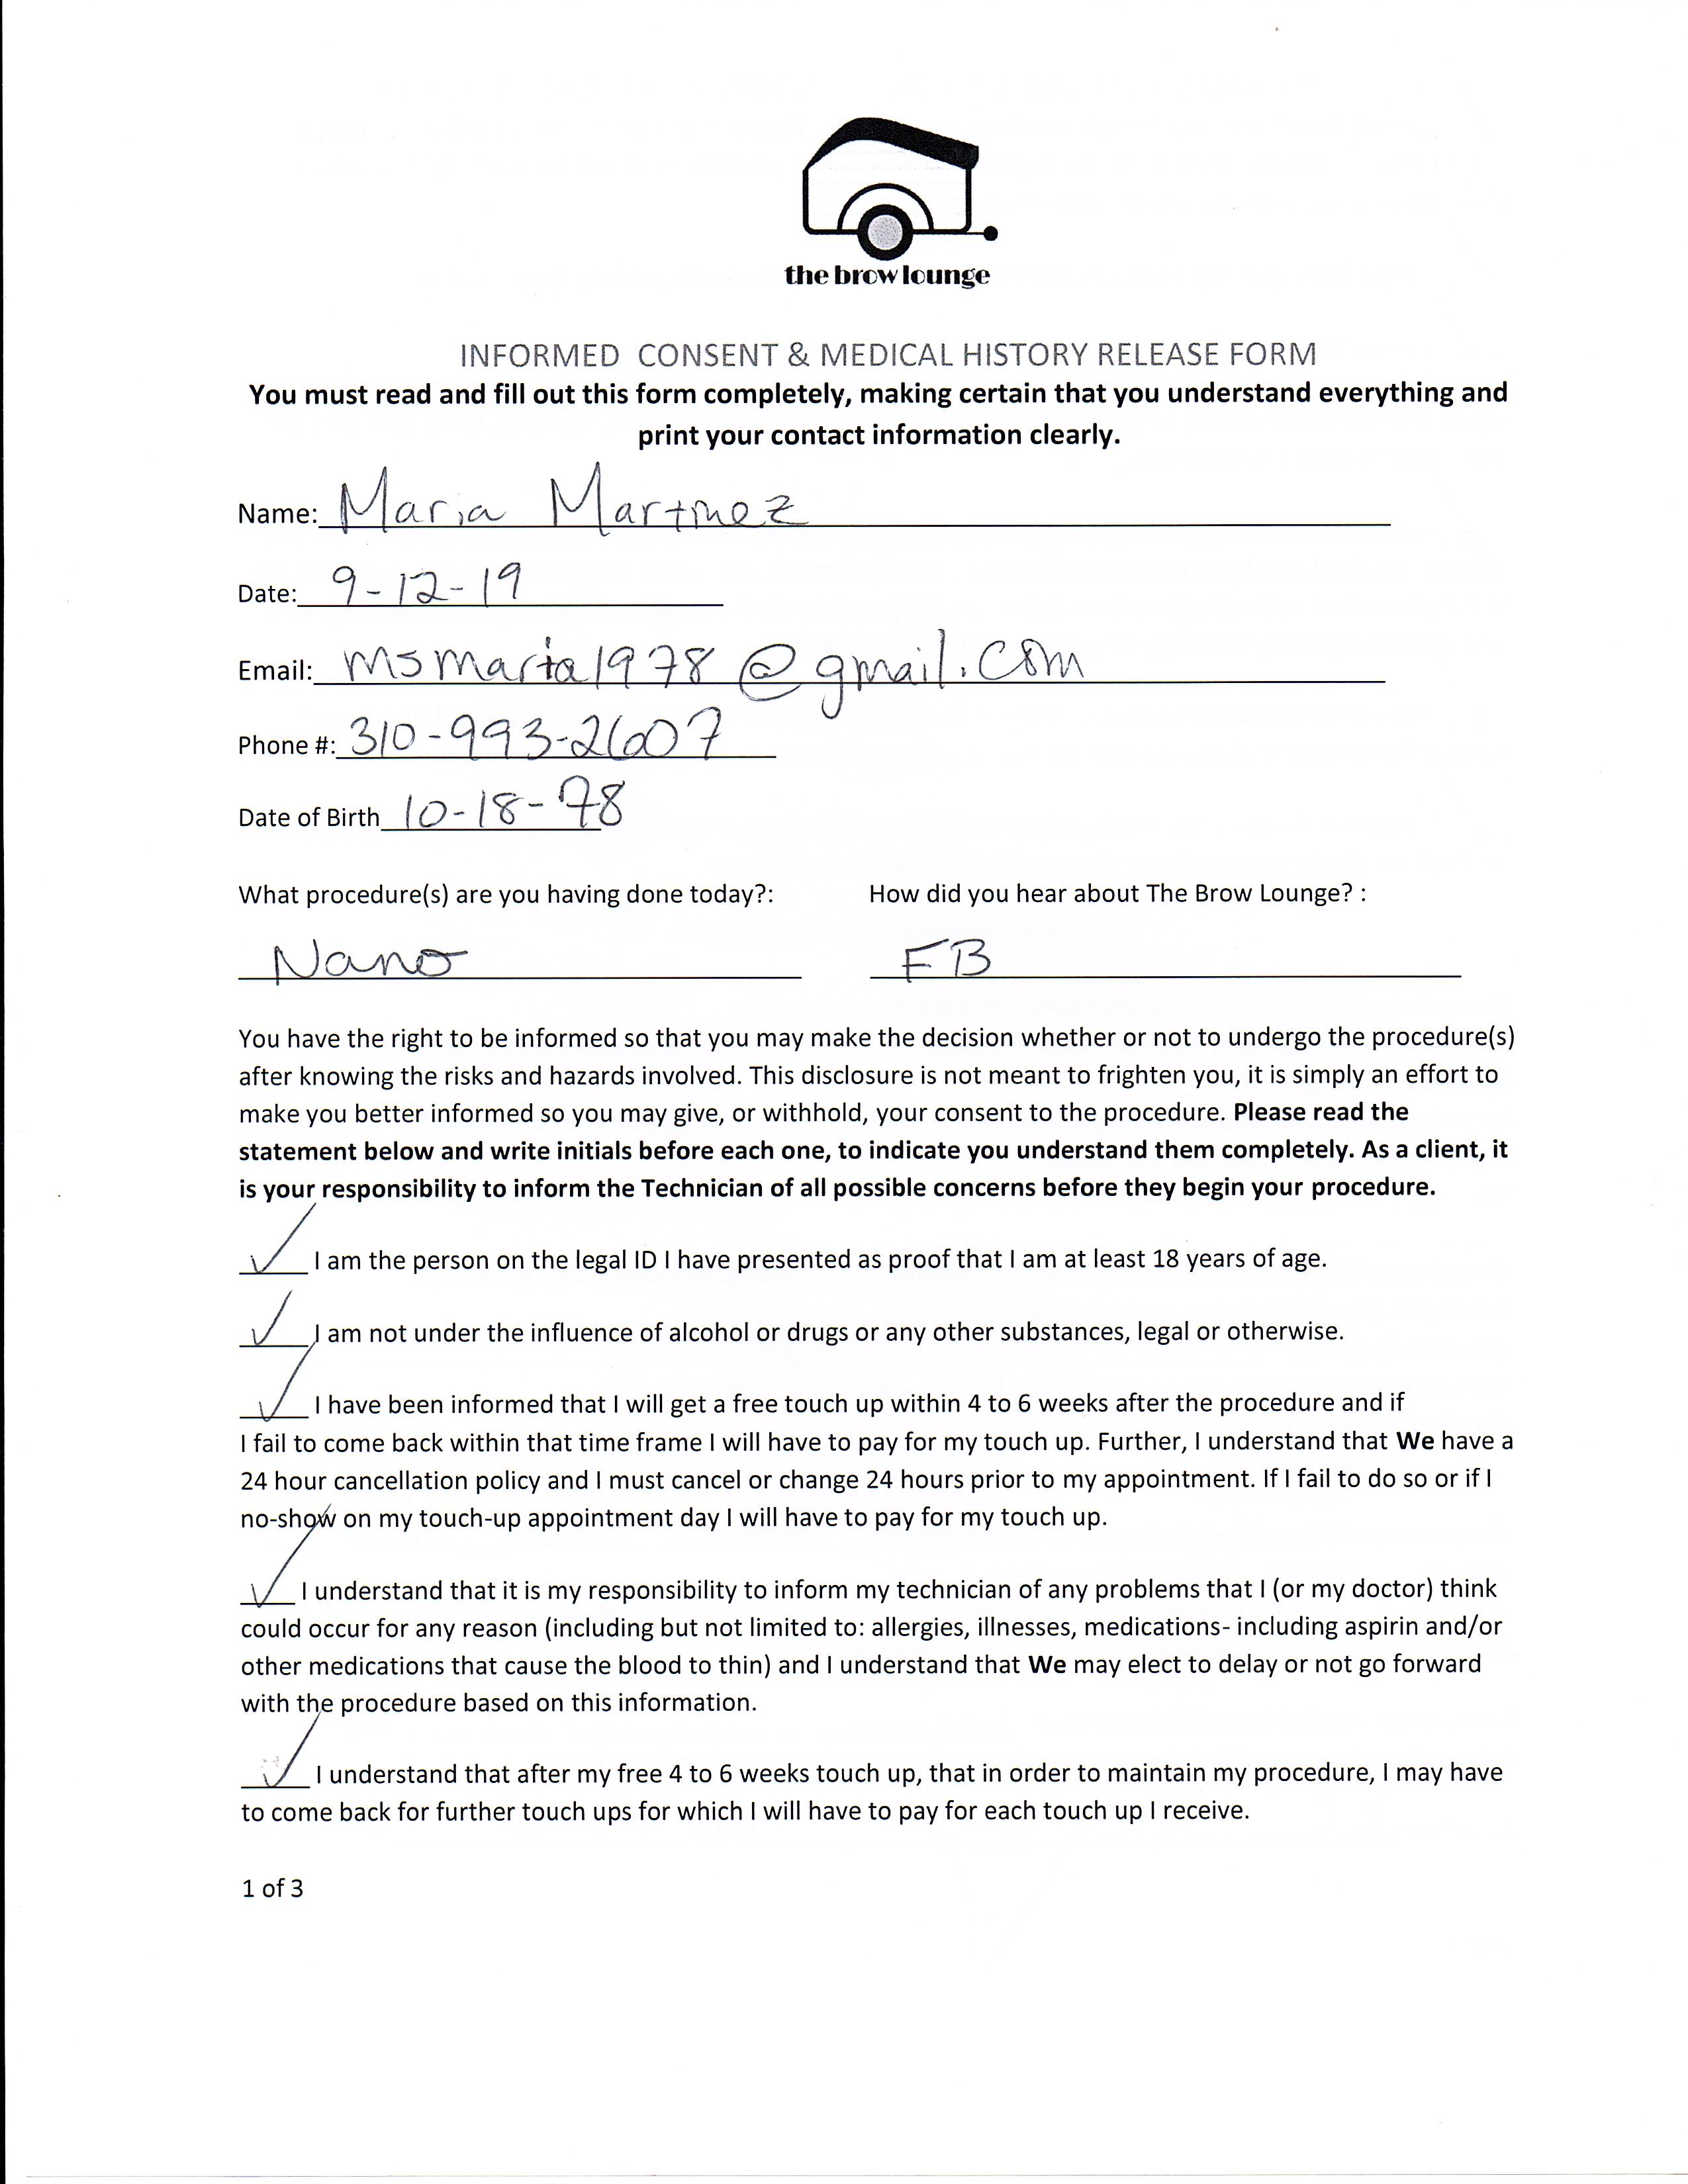 the brow lounge
INFORMED CONSENT & MEDICAL HISTORY RELEASE FORM
You must read and fill out this form completely, making certain that you understand everything and
print your contact information clearly.
Name: Maria Martinez
Date: 9-12-19
Email: msmaria1978@gmail.com
Phone #: 310-993-2607
Date of Birth 10-18-78
What procedure(s) are you having done today?: How did you hear about The Brow Lounge? :
Nano FB
You have the right to be informed so that you may make the decision whether or not to undergo the procedure(s)
after knowing the risks and hazards involved. This disclosure is not meant to frighten you, it is simply an effort to
make you better informed so you may give, or withhold, your consent to the procedure. Please read the
statement below and write initials before each one, to indicate you understand them completely. As a client, it
is your responsibility to inform the Technician of all possible concerns before they begin your procedure.
✓ I am the person on the legal ID I have presented as proof that I am at least 18 years of age.
✓ I am not under the influence of alcohol or drugs or any other substances, legal or otherwise.
✓ I have been informed that I will get a free touch up within 4 to 6 weeks after the procedure and if
I fail to come back within that time frame I will have to pay for my touch up. Further, I understand that We have a
24 hour cancellation policy and I must cancel or change 24 hours prior to my appointment. If I fail to do so or if I
no-show on my touch-up appointment day I will have to pay for my touch up.
✓ I understand that it is my responsibility to inform my technician of any problems that I (or my doctor) think
could occur for any reason (including but not limited to: allergies, illnesses, medications- including aspirin and/or
other medications that cause the blood to thin) and I understand that We may elect to delay or not go forward
with the procedure based on this information.
✓ I understand that after my free 4 to 6 weeks touch up, that in order to maintain my procedure, I may have
to come back for further touch ups for which I will have to pay for each touch up I receive.
1 of 3